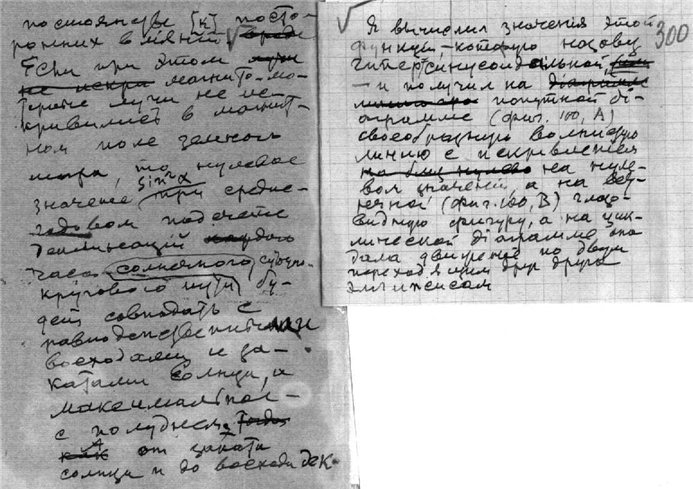 постоянстве [к] посто-
ронних влияний
Если при этом
не искри магнито-мо-
торные лучи не ис-
кривились в магнит-
ном поле земного
шара, то нулевое
значение sin²α при средне-
годовом подсчете
деклинаций
часа солнечного суточн.
кругового пути бу-
дет совпадать с
равноденственными
восходами и за-
катами Солнца, а
максимальное -
с полуднем. Тогда
как от заката
солнца и до восхода дек-
√ Я вычислил значения этой 300
функции—которую назову
гиперсинусоидальной
— и получил на діаграмме
попутной ді-
аграмме (фиг. 100, А)
своеобразную волнистую
линию с искривлением
на нуле-
вом значении, а на
(фиг. 100, В) глазо-
видную фигуру, а на цик-
лической діаграмме она
дала движение по двум
переходящим друг друга
эллипсисам